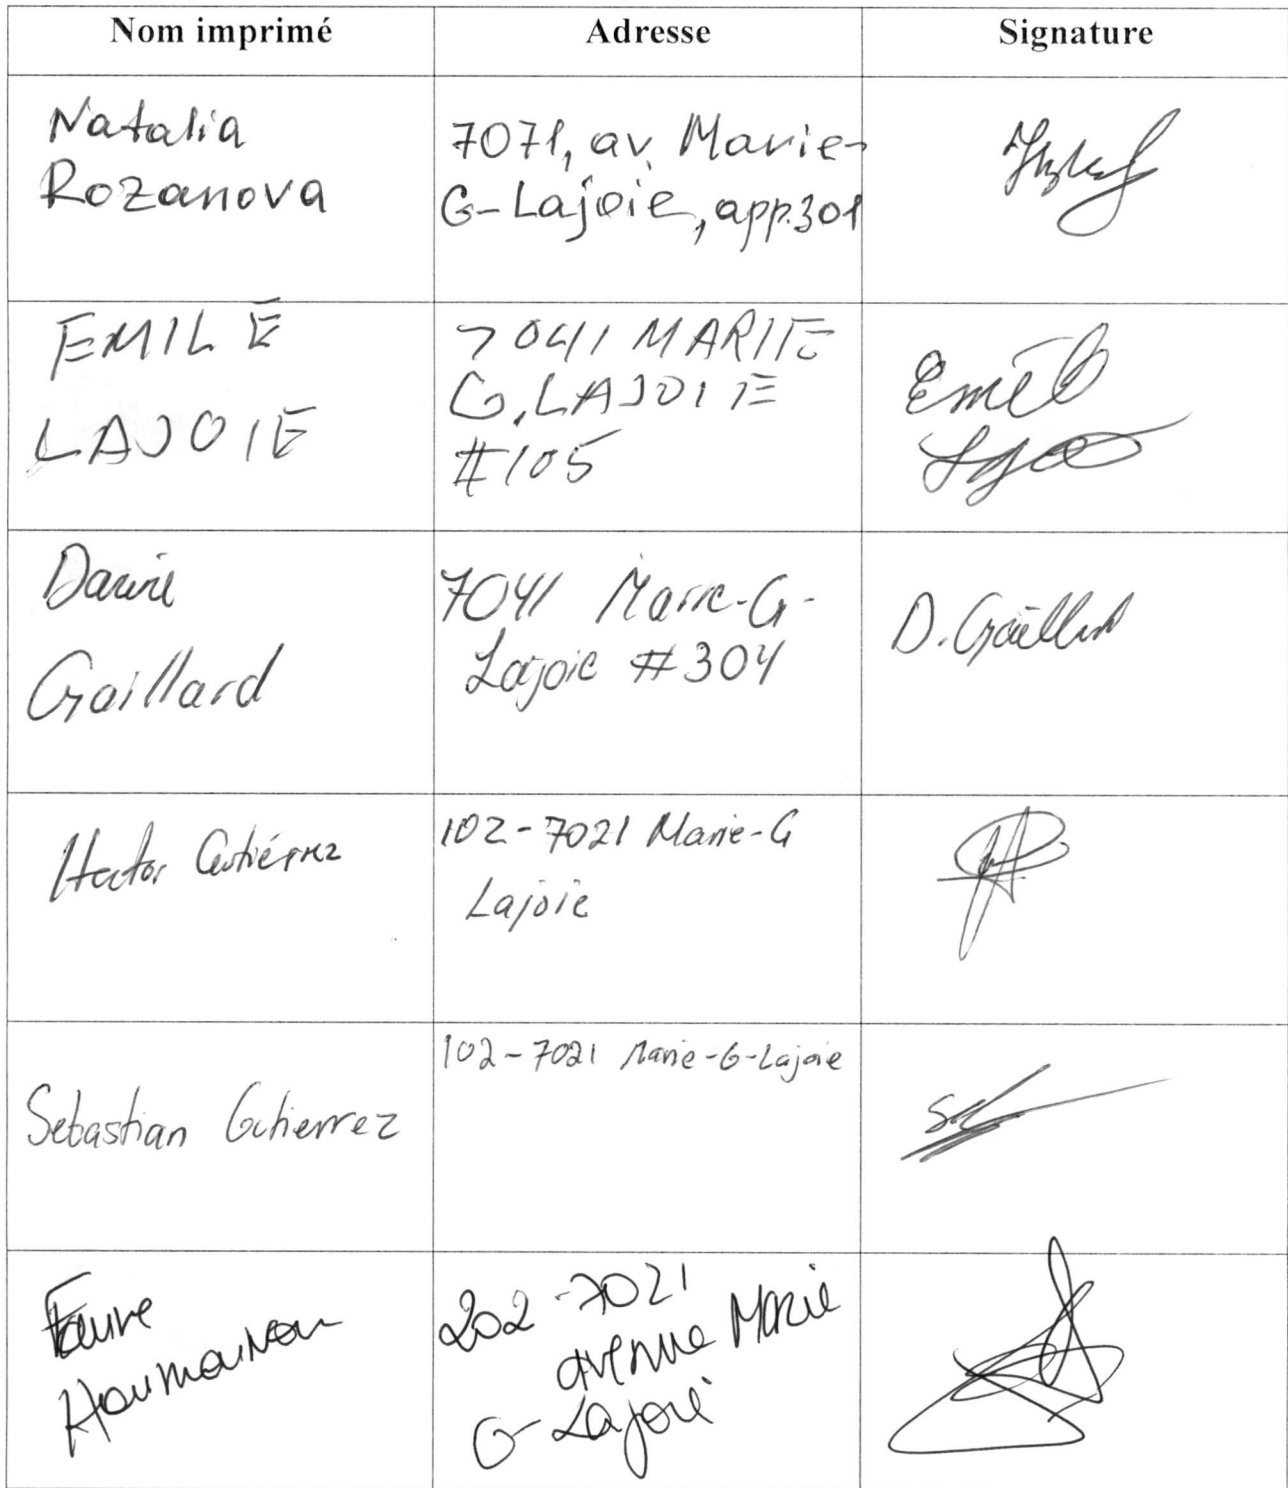 Nom imprimé Adresse Signature
Natalia
Rozanova
7071, av. Marie-
G-Lajoie, app.301
EMILE
LAJOIE
7041 MARIE
G. LAJOIE
#105
Gaillard
7041 Marie-G-
Lajoie #304
D. Gaillard
Hector Gutiérrez
102-7021 Marie-G
Lajoie
Sebastian Gutierrez
102-7021 Marie-G-Lajoie
202-7021
avenue Marie
G-Lajoie